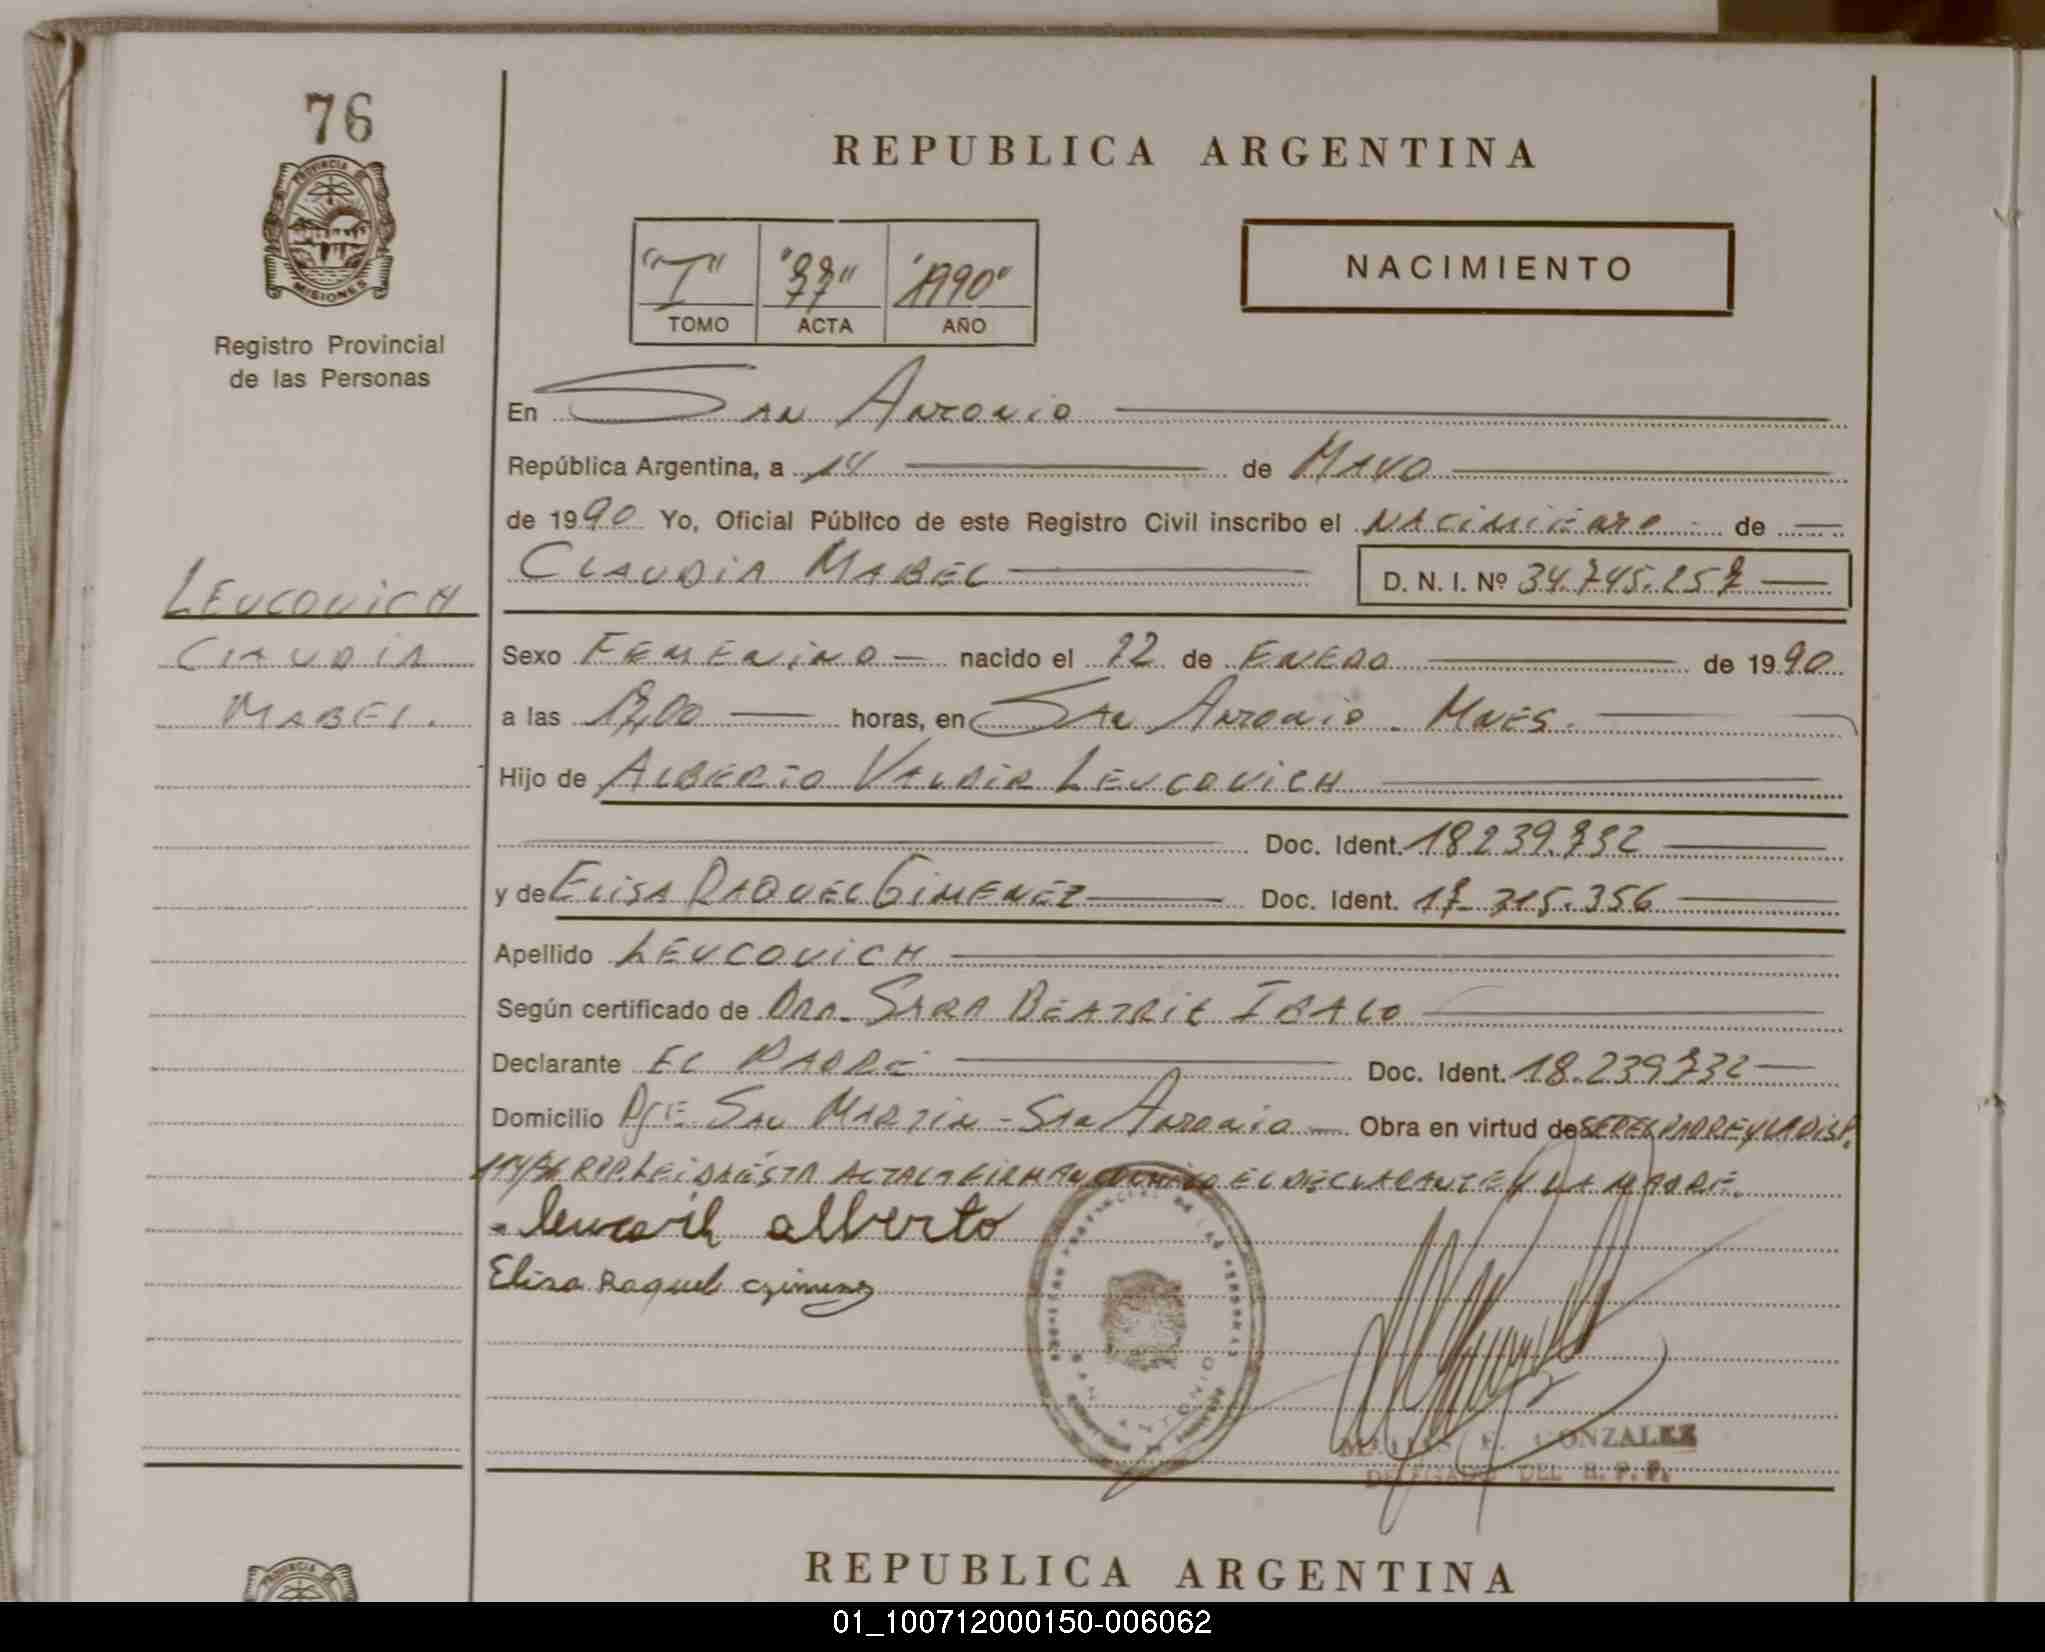 76
PROVINCIA DE
MISIONES
Registro Provincial
de las Personas
REPUBLICA ARGENTINA
"I" "77" "1990"
TOMO ACTA AÑO
NACIMIENTO
En San Antonio
República Argentina, a 14 de Mayo
de 1990 Yo, Oficial Público de este Registro Civil inscribo el nacimiento de
Claudia Mabel D. N. I. Nº 34.745.257
Leucovich
Claudia
Mabel.
Sexo Femenino nacido el 22 de Enero de 1990
a las horas, en San Antonio. Mnes.
Hijo de Alberto Valdir Leucovich
Doc. Ident. 18.239.732
y de Elisa Raquel Gimenez Doc. Ident. 17.715.356
Apellido Leucovich
Según certificado de Dra. Sara Beatriz
Declarante El Padre Doc. Ident. 18.239.732
Domicilio Pje San Martin - San Antonio Obra en virtud de ser el padre y la Disp.
RPP. Leida ésta acta la firman conmigo el declarante y la madre.
alberto
Elisa Raquel Gimenez
SAN ANTONIO
E. GONZALEZ
DELEGADO DEL R. P. P.
REPUBLICA ARGENTINA
PROVINCIA
01_100712000150-006062